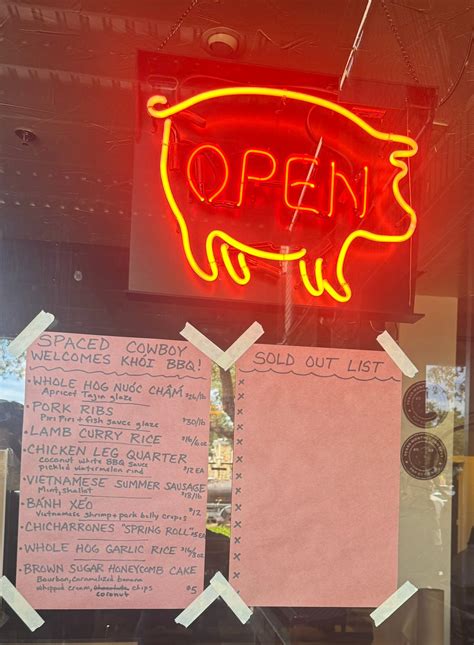 OPEN
SPACED COWBOY
WELCOMES KHÓI BBQ!
• WHOLE HOG NUÓC CHẤM
Apricot Tajin glaze $26/lb
• PORK RIBS
Piri Piri + fish sauce glaze $30/lb
• LAMB CURRY RICE $16/6oz
• CHICKEN LEG QUARTER
coconut white BBQ sauce
pickled watermelon rind $12 EA
• VIETNAMESE SUMMER SAUSAGE
Mint, shallot $18/lb
• BÁNH XÉO $12
Vietnamese shrimp + pork belly crepes
• CHICHARRONES "SPRING ROLL" $5 EA
• WHOLE HOG GARLIC RICE
• BROWN SUGAR HONEYCOMB CAKE
Bourbon, caramelized banana
whipped cream, chips $5
coconut
SOLD OUT LIST
x
x
x
x
x
x
x
x
x
x
x
x
x